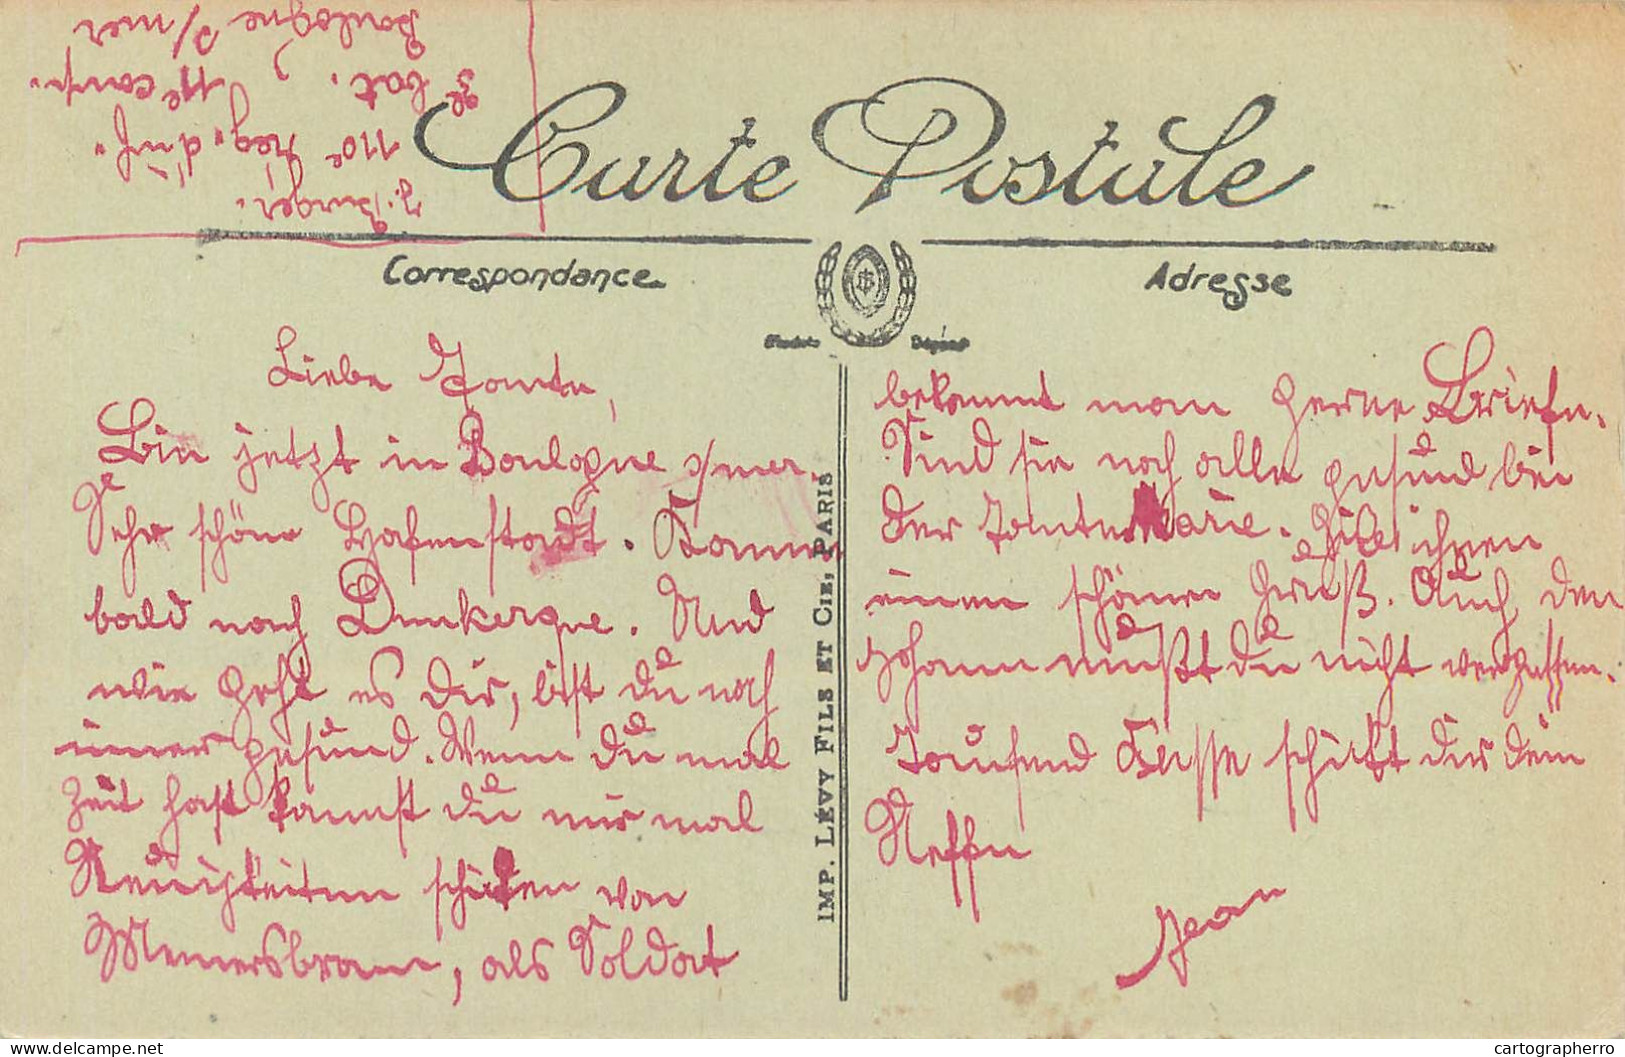 J. Burger.
110e Rég. d'inf.
3e bat., 11e comp.
Boulogne s/mer
Carte Postale
Correspondance
Adresse
Modèle Déposé
Liebe Tante,
Bin jetzt in Boulogne s/mer.
Sehr schöne Hafenstadt. Komme
bald nach Dunkerque. Und
wie geht es dir, bist du noch
immer gesund. Wenn du mal
Zeit hast kannst du mir mal
Neuigkeiten schicken von
, als Soldat
bekommt man gerne Briefe.
Sind sie noch alle gesund bei
der Tante Marie. ihnen
einen schönen Gruß. Auch den
Johann mußt du nicht vergessen.
Tausend Küsse schickt dir dein
Neffe
Jean
IMP. LÉVY FILS ET CIE, PARIS
https://www.delcampe.net
cartographerro